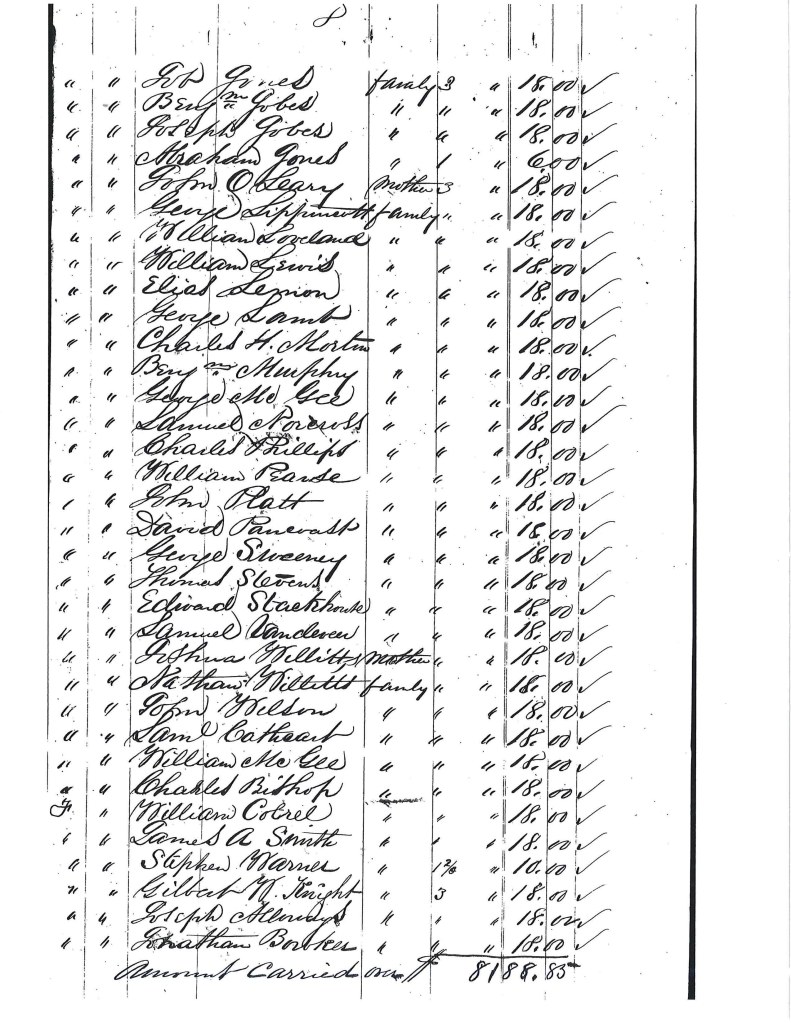 8
" " Job Jones family 3 " 18.00 ✓
" " Benj m Gobes " " " 18.00 ✓
" " Joseph Gobes " " " 18.00 ✓
" " Abraham Jones " 1 " 6.00 ✓
" " John O Leary Mother 3 " 18.00 ✓
" " George Lippincott family " " 18.00 ✓
" " William Loveland " " " 18.00 ✓
" " William Lewis " " " 18.00 ✓
" " Elias Lemon " " " 18.00 ✓
" " George Lamb " " " 18.00 ✓
" " Charles H. Mortin " " " 18.00 ✓
" " Benj m Murphy " " " 18.00 ✓
" " George Mc Gee " " " 18.00 ✓
" " Samuel Norcross " " " 18.00 ✓
" " Charles Phillips " " " 18.00 ✓
" " William Pearse " " " 18.00 ✓
" " John Platt " " " 18.00 ✓
" " David Pancoast " " " 18.00 ✓
" " George Sweeney " " " 18.00 ✓
" " Thomas Stevens " " " 18.00 ✓
" " Edward Stackhouse " " " 18.00 ✓
" " Samuel Vandeven " " " 18.00 ✓
" " Joshua Willitts Mother " " 18.00 ✓
" " Nathan Willitts family " " 18.00 ✓
" " John Wilson " " " 18.00 ✓
" " Saml Cathcart " " " 18.00 ✓
" " William Mc Gee " " " 18.00 ✓
" " Charles Bishop " " " 18.00 ✓
" William Cobrel " " " 18.00 ✓
" " James A Smith " " " 18.00 ✓
" " Stephen Warner " 1 2/3 " 10.00 ✓
" " Gilbert W. Knight " 3 " 18.00 ✓
" " Joseph Alloways " " " 18.00 ✓
" " Jonathan Bowker " " " 18.00 ✓
Amount Carried over $ 8188.85